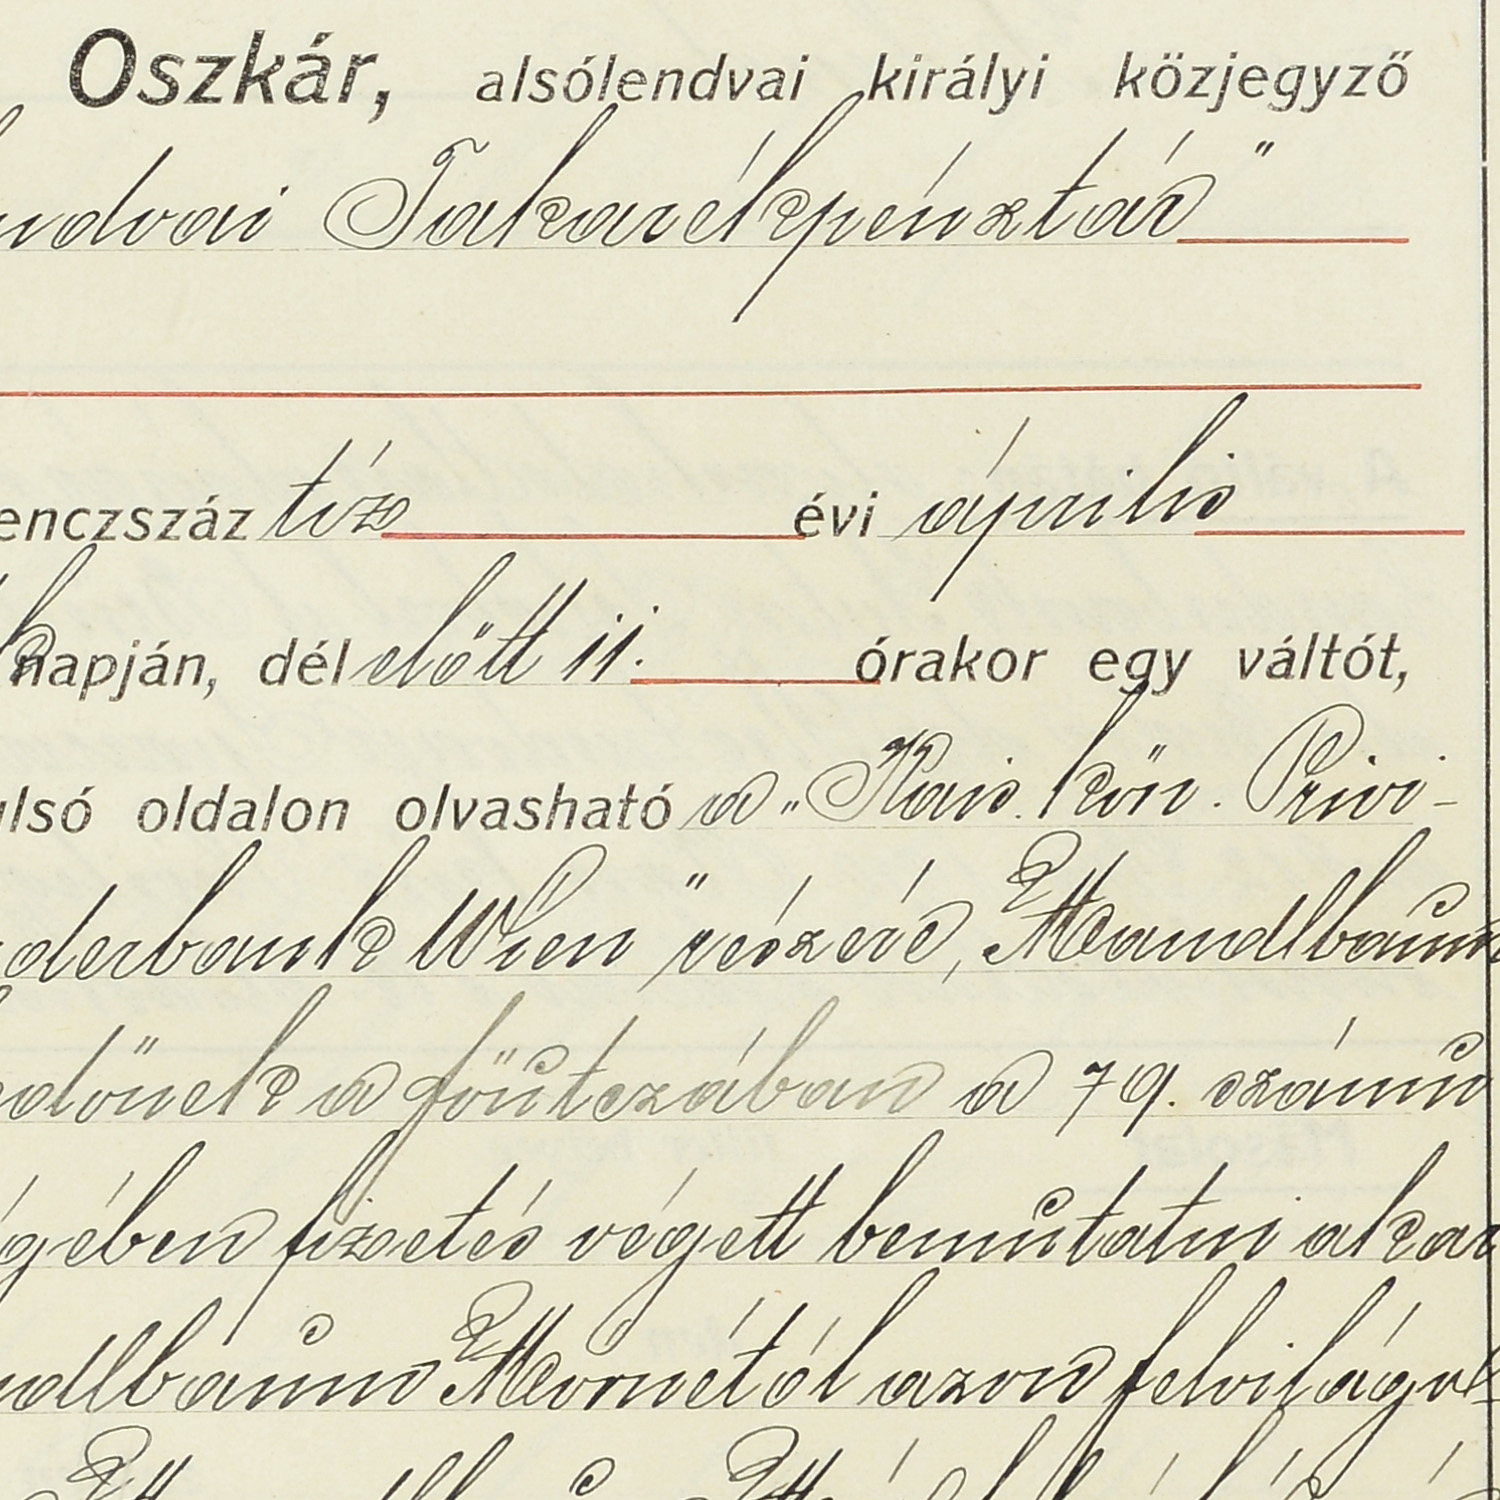 Oszkár, alsólendvai királyi közjegyző
ndvai Takarékpénztár"
enczszáz tíz évi április
napján, dél előtt 11. órakor egy váltót,
ulsó oldalon olvasható a „Kais. kön. Privi-
derbank Wien" részére, Mandlbaum
dőnek a főutczában a 79. számú
gében fizetés végett bemutatni akar
ndlbaum Mórnétól azon felvilágo